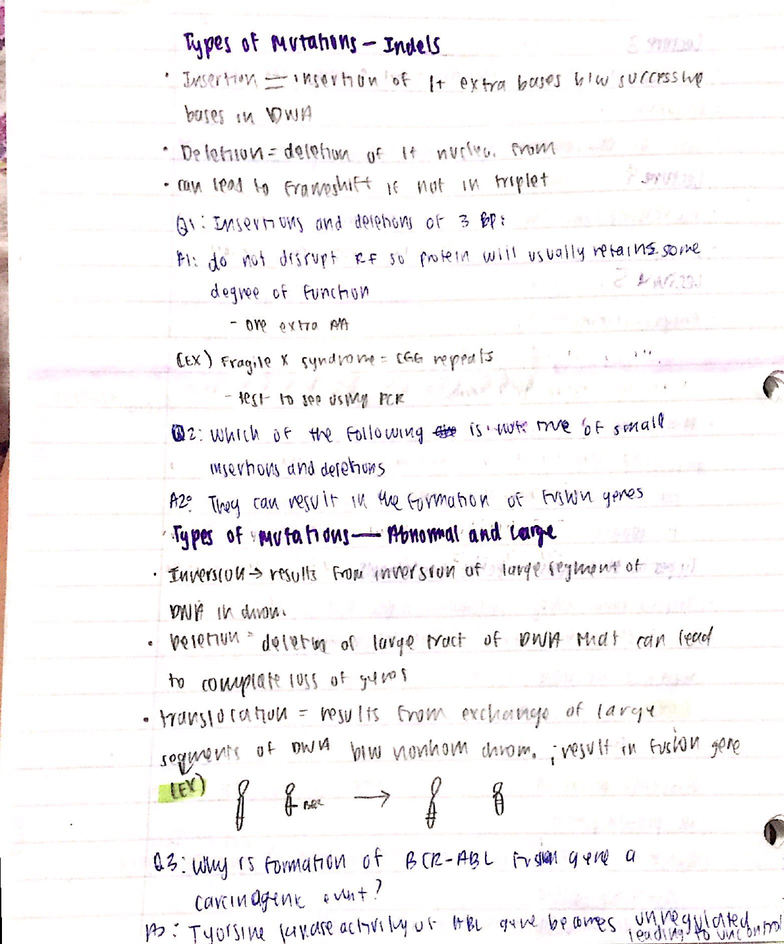 Types of Mutations - Indels
• Insertion = insertion of 1+ extra bases b/w successive
bases in DNA
• Deletion = deletion of 1+ nucleo. from
• can lead to frameshift if not in triplet
Q1: Insertions and deletions of 3 BP:
A1: do not disrupt RF so protein will usually retains some
degree of function
- one extra AA
(EX) Fragile X syndrome = CGG repeats
- test to see using PCR
Q2: Which of the following is not true of small
insertions and deletions
A2: They can result in the formation of fusion genes
Types of Mutations — Abnormal and Large
• Inversion → results from inversion of large segment of
DNA in chrom.
• Deletion = deletion of large tract of DNA that can lead
to complete loss of genes
• translocation = results from exchange of large
segments of DNA b/w nonhom chrom. ; result in fusion gene
(EX) →
Q3: Why is formation of BCR-ABL fusion gene a
carcinogenic event?
A3: Tyorsine kinase activity of ABL gene becomes unregulated
leading to uncontrol